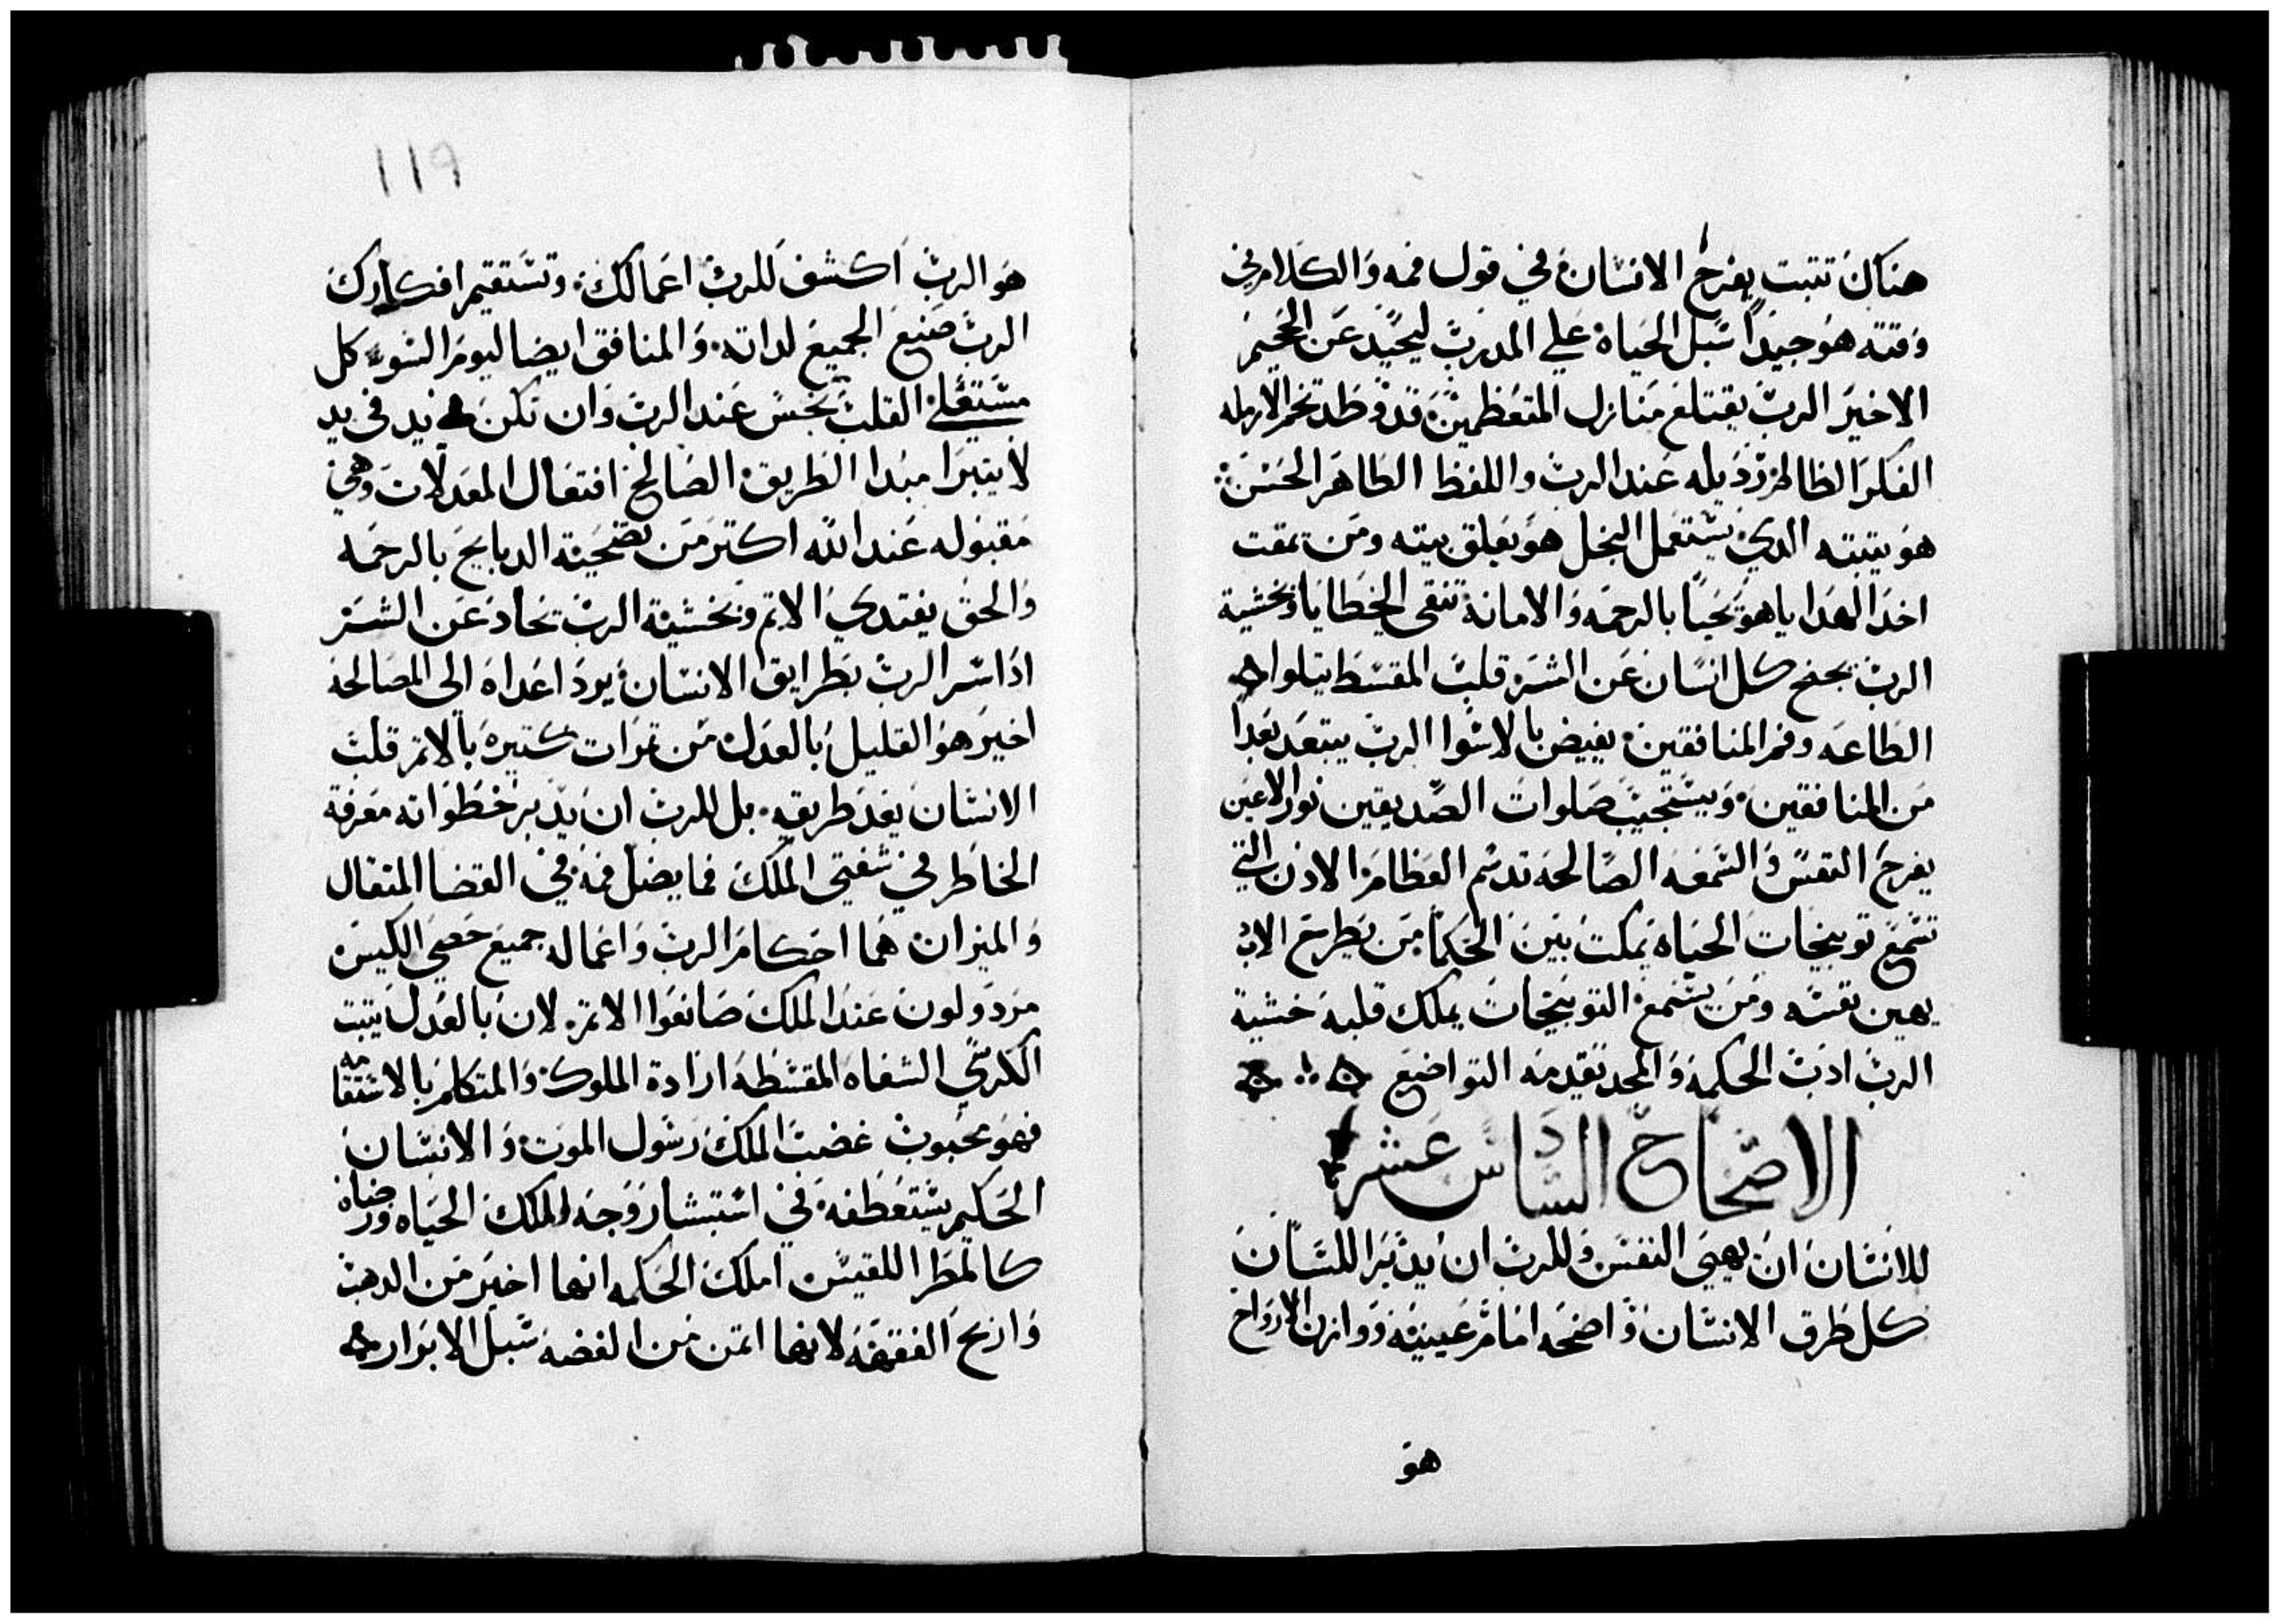 هناك تتبت يفرح الانسان في قول فمه والكلام في
وقته هو جيداً سبل الحياه علي المدرب ليحيد عن الجحيم
الاخير الرب يقتلع منازل المتعظمين ويوطد تخم الارمله
الفكر الظالم رديله عند الرب واللفظ الطاهر الحسن
هو يتبته الدي يستعمل البخل هو يقلق بيته ومن يمقت
اخد الهدايا هو يحيا بالرحمه والامانة تنقى الخطايا وبخشية
الرب يجنح كل انسان عن الشر قلب المقسط يتلوا
الطاعه وفم المنافقين يفيض بالاسوا الرب يبتعد بعداً
من المنافقين ويستجيب صلوات الصديقين نور الاعين
يفرح النفس والسمعه الصالحه تدسم العظام الادن التي
تسمع توبيخات الحياه تمكت بين الحكما من يطرح الادب
يهين نفسه ومن يستمع التوبيخات يملك قلبه خشية
الرب ادب الحكمه والمجد تقدمه التواضع
الاصحاح السادس عشر
للانسان ان يهيى النفس وللرب ان يدبر اللسان
كل طرق الانسان واضحه امام عينيه ووازن الارواح
هو
119
هو الرب اكشف للرب اعمالك وتستقيم افكارك
الرب صنع الجميع لداته والمنافق ايضا ليوم السوء كل
مستعلى القلب نجس عند الرب وان تكن يد في يد
لا يتبرا مبدا الطريق الصالح افتعال المعدلات وهي
مقبوله عند الله اكتر من تضحية الدبايح بالرحمه
والحق يفتدي الاتم وبخشية الرب تحاد عن الشر
اداسر الرب بطرايق الانسان يرد اعداه الى المصالحه
اخير هو القليل بالعدل من تمرات كتيره بالاتم قلب
الانسان يعد طريقه بل للرب ان يدبر خطواته معرفة
الخاطر في شفتي الملك فما يضل فمه في القضا المتقال
والميزان هما احكام الرب واعماله جميع حصي الكيس
مردولون عند الملك صانعوا الاتم لان بالعدل يتبت
الكرسي الشفاه المقسطه ارادة الملوك والمتكلم بالاستقامه
فهو محبوب غضب الملك رسول الموت والانسان
الحكيم يستعطفه في استبشار وجه الملك الحياه ورضاه
كالمطر اللقيس املك الحكمه انها اخير من الدهب
واربح الفقهه لانها اتمن من الفضه سبل الابرار